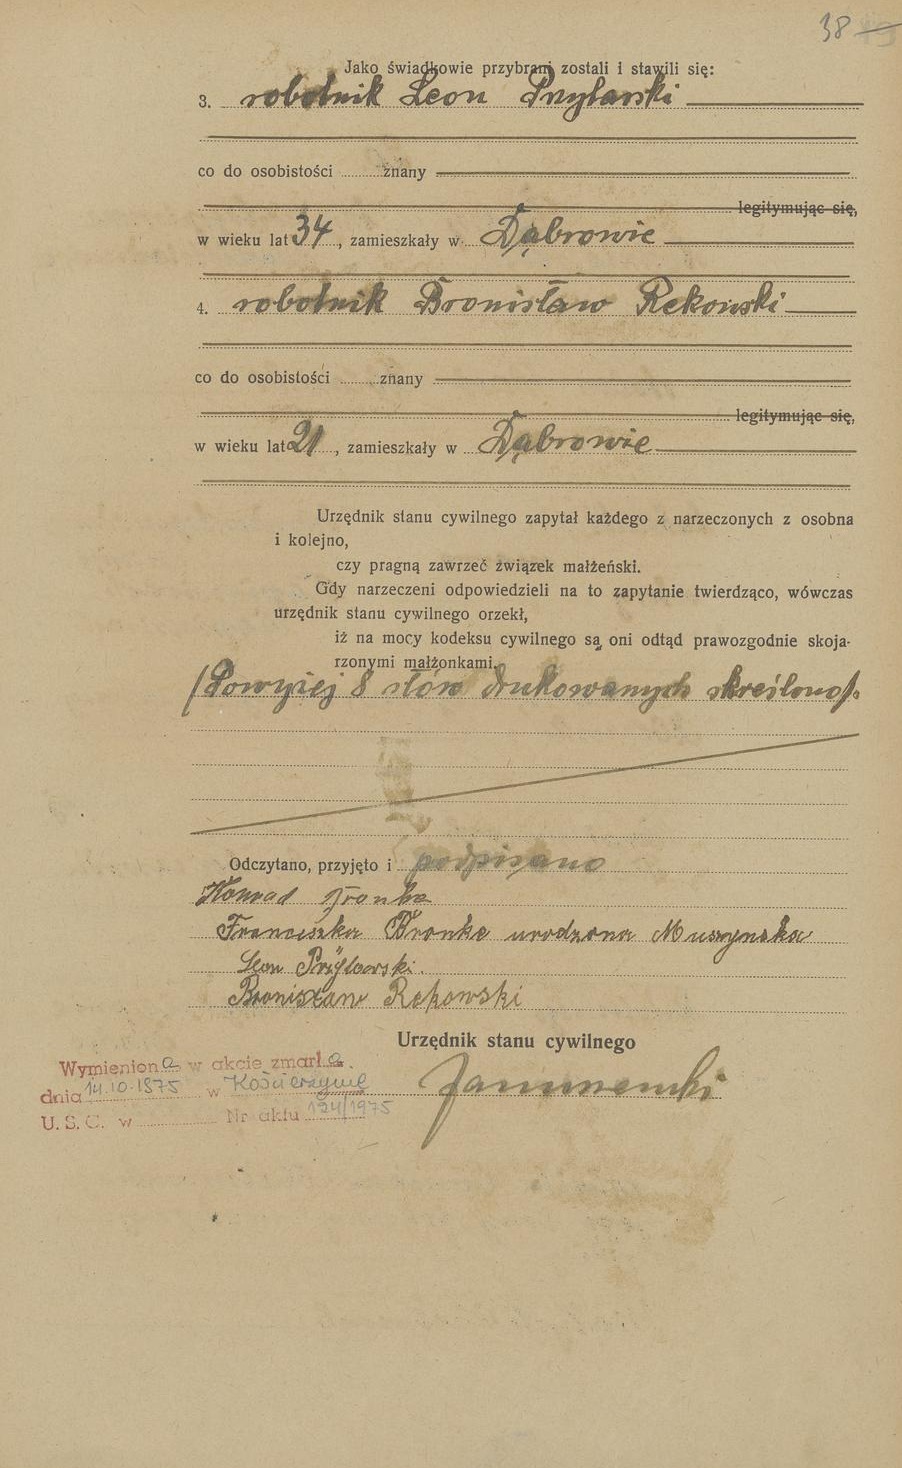 38
Jako świadkowie przybrani zostali i stawili się:
3. robotnik Leon Przytarski
co do osobistości znany
legitymując się,
w wieku lat 34, zamieszkały w Dąbrowie
4. robotnik Bronisław Rekowski
co do osobistości znany
legitymując się,
w wieku lat 21, zamieszkały w Dąbrowie
Urzędnik stanu cywilnego zapytał każdego z narzeczonych z osobna
i kolejno,
czy pragną zawrzeć związek małżeński.
Gdy narzeczeni odpowiedzieli na to zapytanie twierdząco, wówczas
urzędnik stanu cywilnego orzekł,
iż na mocy kodeksu cywilnego są oni odtąd prawozgodnie skoja-
rzonymi małżonkami.
/Powyżej 8 słów drukowanych skreślono/.
Odczytano, przyjęto i podpisano
Konrad Bronka
Franciszka Bronke urodzona Muszynska
Leon Przytarski.
Bronisław Rekowski
Urzędnik stanu cywilnego
Wymieniona w akcie zmarła.
dnia 14.10.1975 w Kościerzynie
U. S. C. w Nr aktu 124/1975